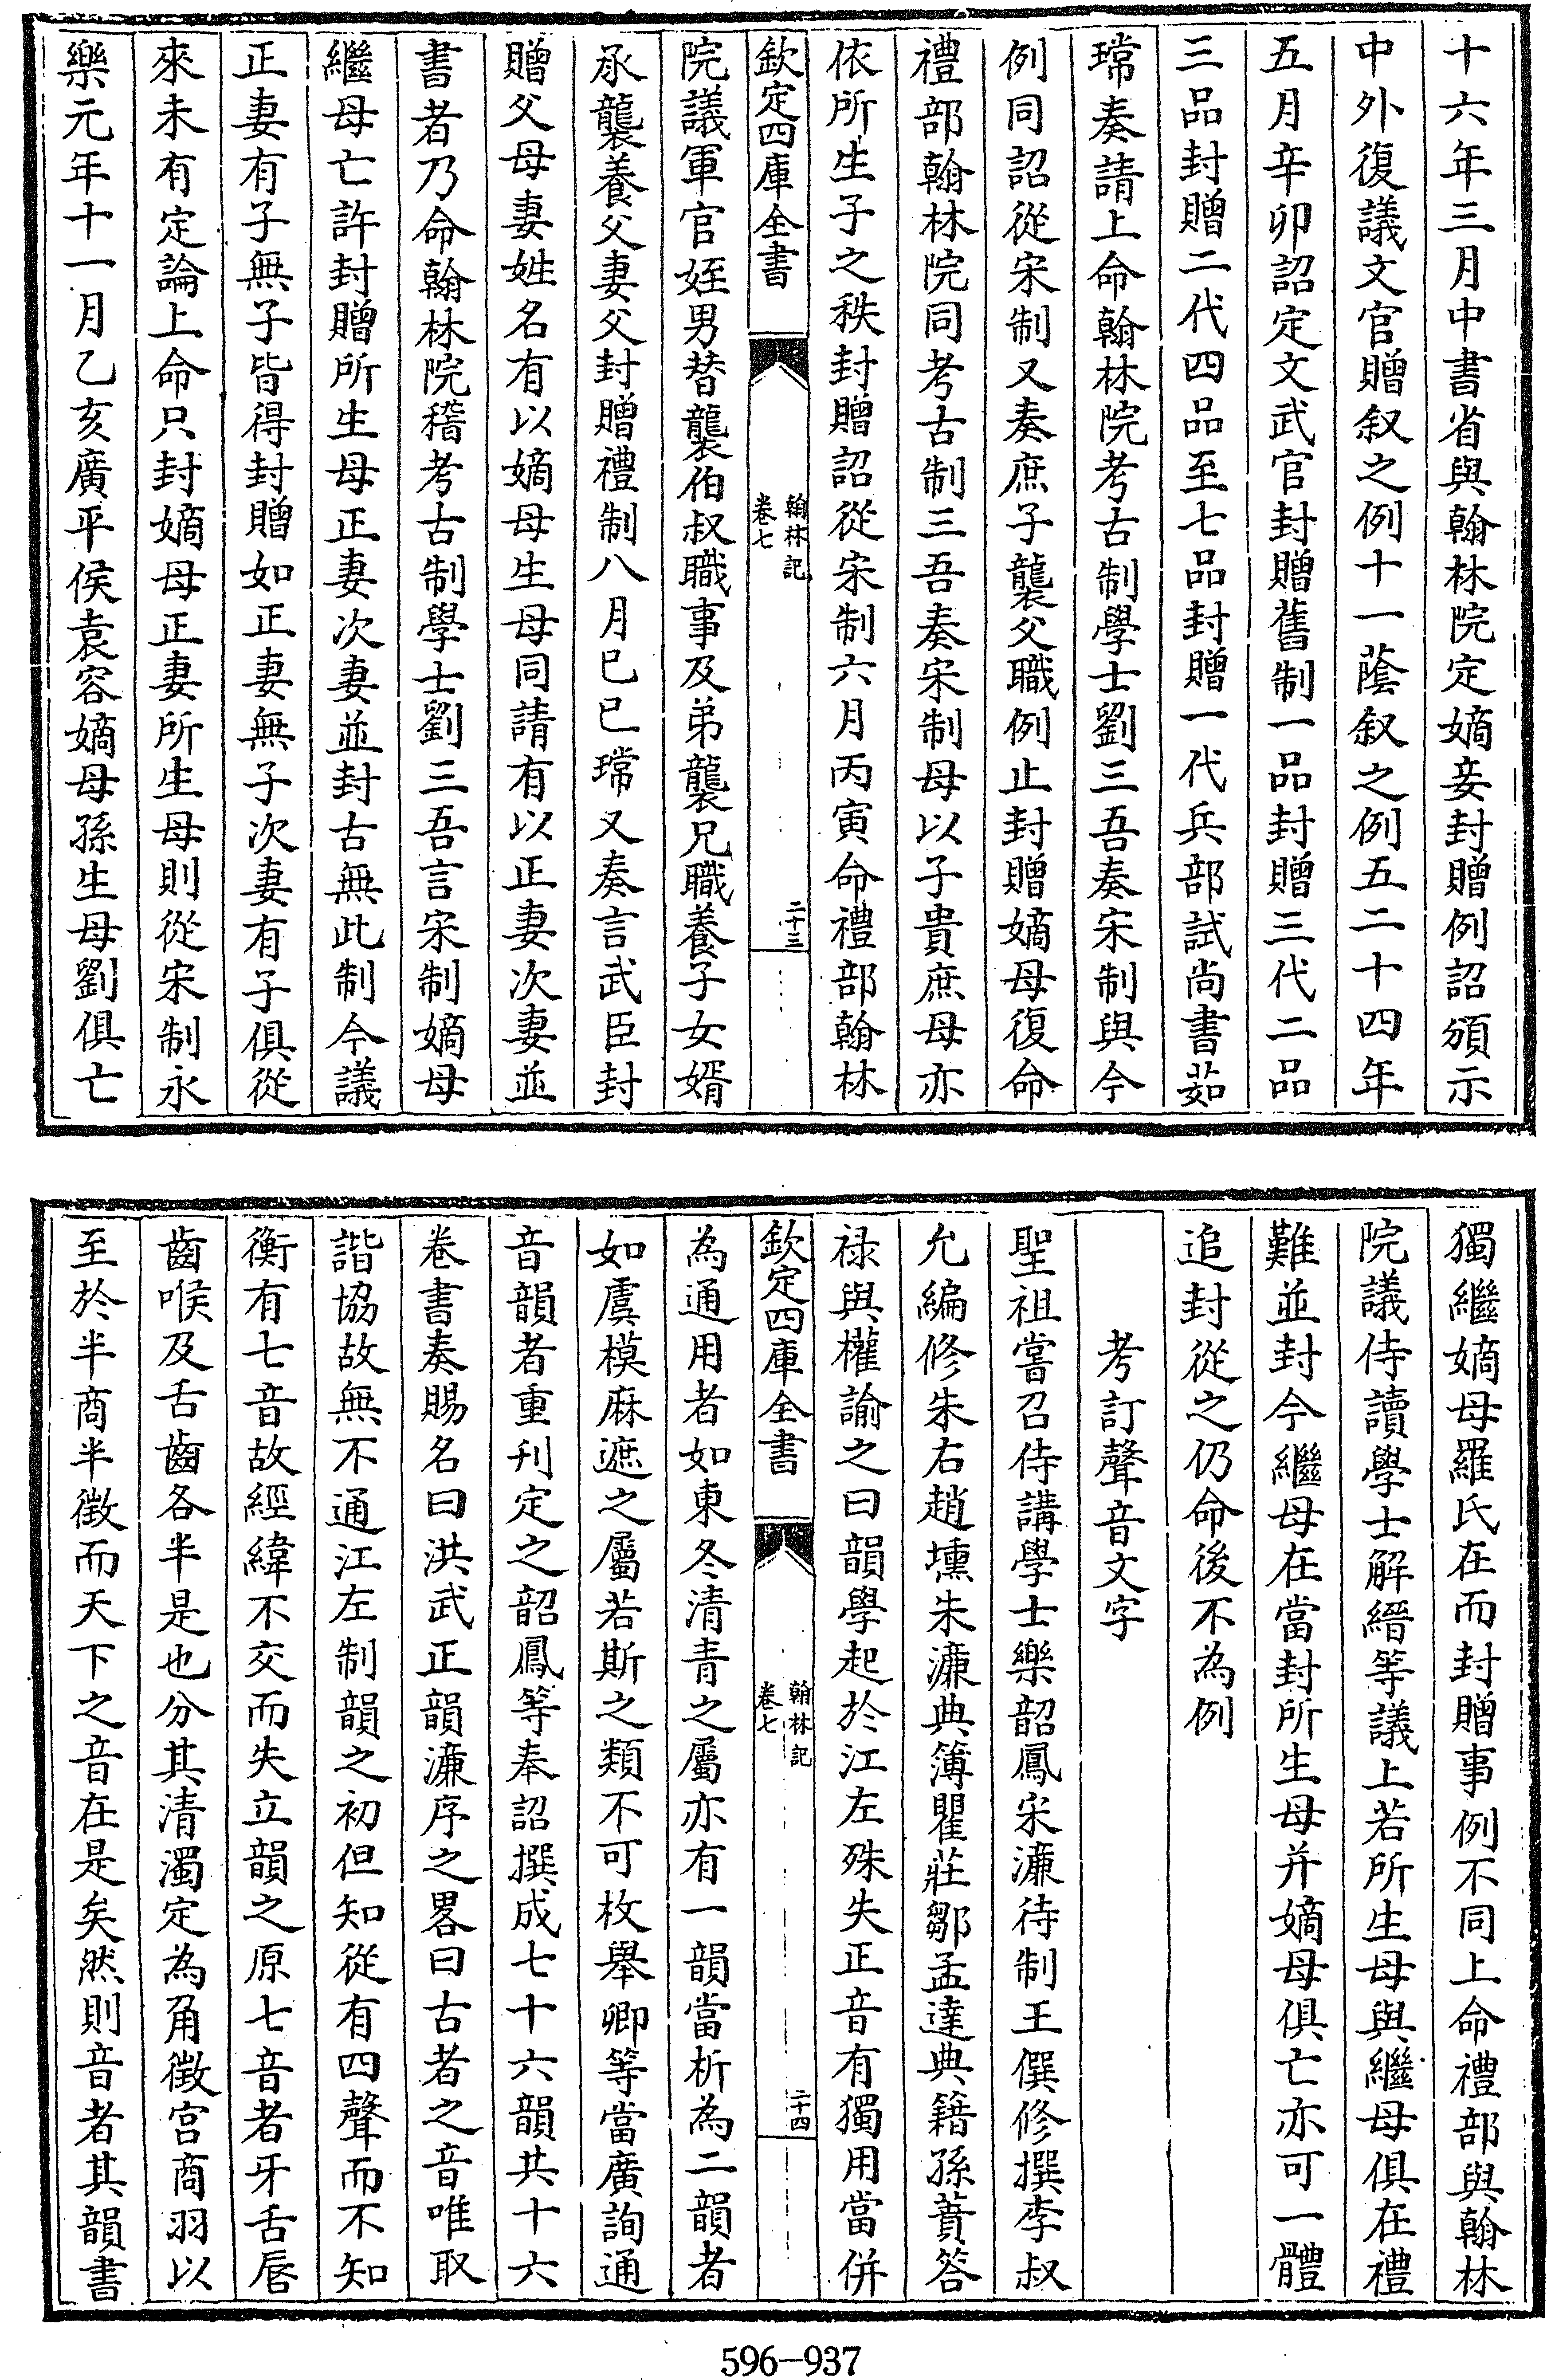 十六年三月中書省與翰林院定嫡妾封贈例詔頒示
中外復議文官贈叙之例十一蔭叙之例五二十四年
五月辛卯詔定文武官封贈舊制一品封贈三代二品
三品封贈二代四品至七品封贈一代兵部試尚書茹
瑺奏請上命翰林院考古制學士劉三吾奏宋制與今
例同詔從宋制又奏庶子襲父職例止封贈嫡母復命
禮部翰林院同考古制三吾奏宋制母以子貴庶母亦
依所生子之秩封贈詔從宋制六月丙寅命禮部翰林
欽定四庫全書
翰林記
卷七
二十三
院議軍官姪男替襲伯叔職事及弟襲兄職養子女婿
承襲養父妻父封贈禮制八月已已瑺又奏言武臣封
贈父母妻姓名有以嫡母生母同請有以正妻次妻並
書者乃命翰林院稽考古制學士劉三吾言宋制嫡母
繼母亡許封贈所生母正妻次妻並封古無此制今議
正妻有子無子皆得封贈如正妻無子次妻有子俱從
來未有定論上命只封嫡母正妻所生母則從宋制永
樂元年十一月乙亥廣平侯袁容嫡母孫生母劉俱亡
獨繼嫡母羅氏在而封贈事例不同上命禮部與翰林
院議侍讀學士解縉等議上若所生母與繼母俱在禮
難並封今繼母在當封所生母并嫡母俱亡亦可一體
追封從之仍命後不為例
考訂聲音文字
聖祖嘗召侍講學士樂韶鳳宋濂待制王僎修撰李叔
允編修朱右趙壎朱濂典簿瞿莊鄒孟達典籍孫蕡答
祿與權諭之曰韻學起於江左殊失正音有獨用當併
欽定四庫全書
翰林記
卷七
二十四
為通用者如東冬清青之屬亦有一韻當析為二韻者
如虞模麻遮之屬若斯之類不可枚舉卿等當廣詢通
音韻者重刊定之韶鳳等奉詔撰成七十六韻共十六
卷書奏賜名曰洪武正韻濂序之畧曰古者之音唯取
諧協故無不通江左制韻之初但知從有四聲而不知
衡有七音故經緯不交而失立韻之原七音者牙舌唇
齒喉及舌齒各半是也分其清濁定為角徵宮商羽以
至於半商半徵而天下之音在是矣然則音者其韻書
596-937